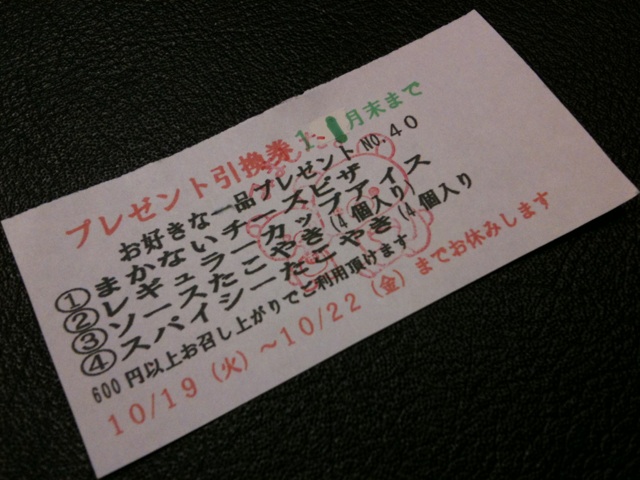 プレゼント引換券 11月末まで
お好きな一品プレゼント NO.40
①まかないチーズピザ
②レギュラーカップアイス
③ソースたこやき(4個入り)
④スパイシーたこやき(4個入り
600円以上お召し上がりでご利用頂けます
10/19(火)~10/22(金)までお休みします